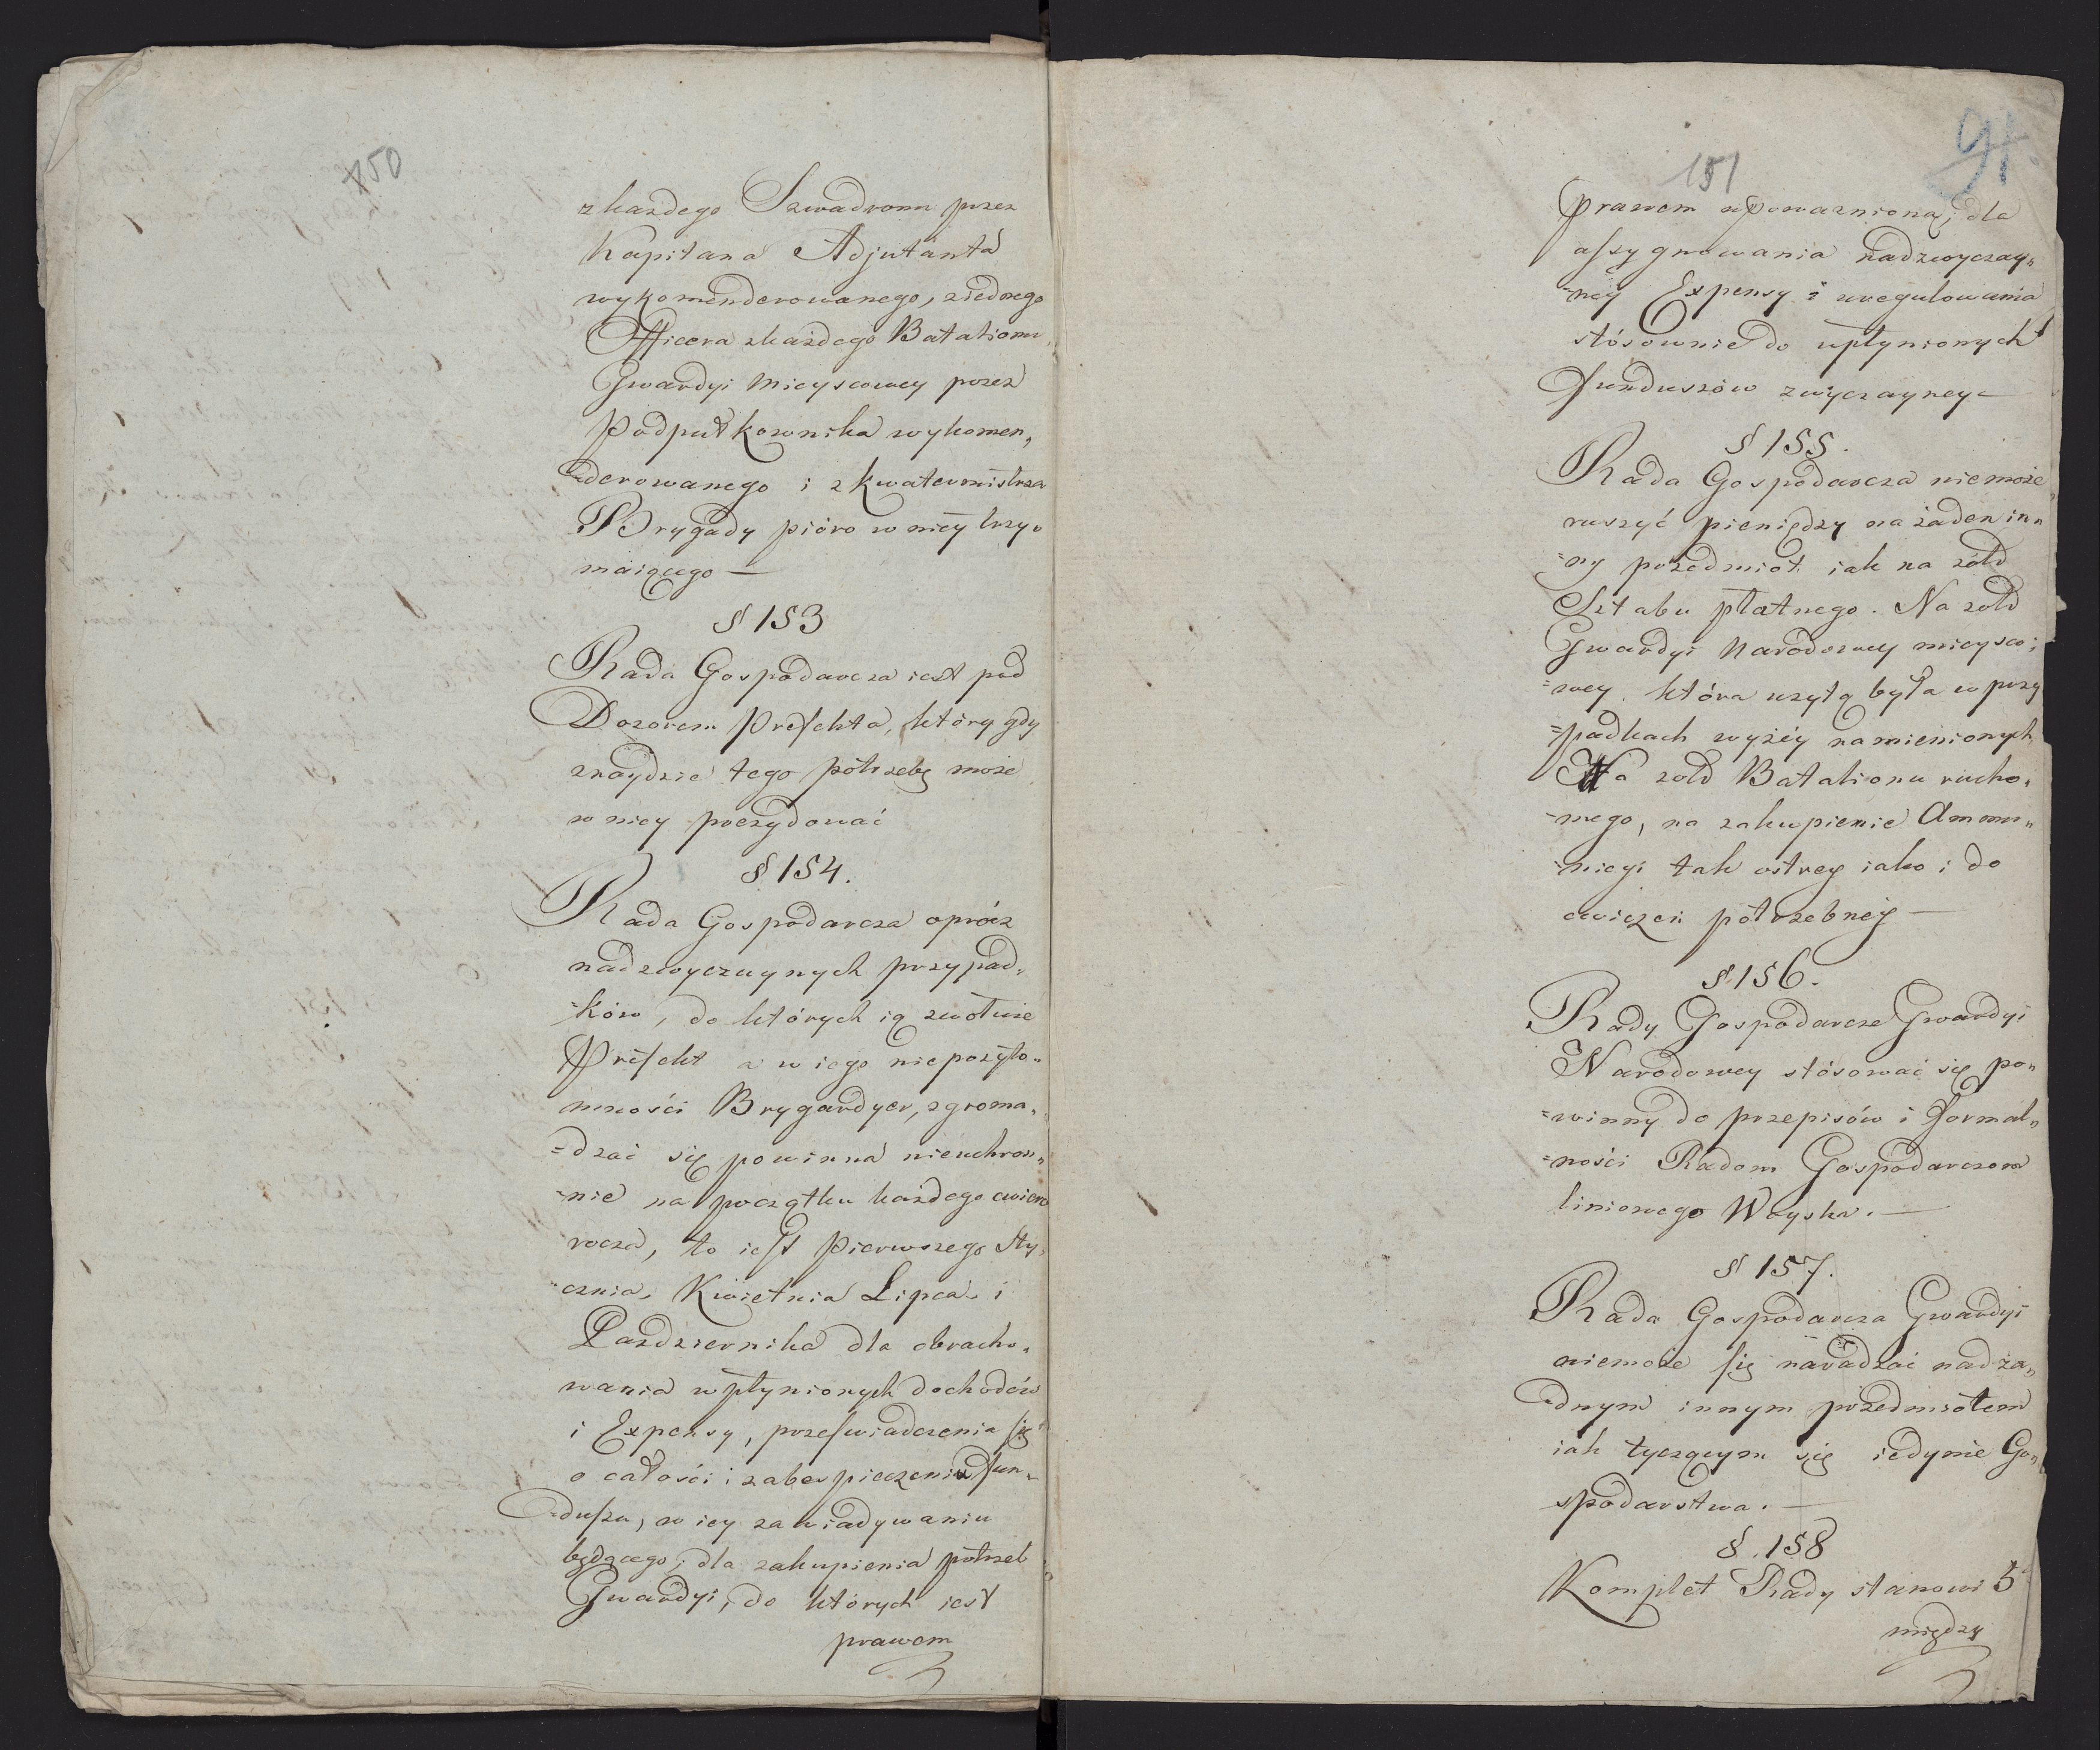 150
z każdego Szwadronu przez
Kapitana Adjutanta
wykomenderowanego, z iednego
Officera z każdego Batalionu
Gwardyi Mieyscowey przez
Podpułkownika wykomen„
derowanego i z Kwatermistrza
Brygady pióro w niey trzy„
maiącego —
§ 153
Rada Gospodarcza iest pod
Dozorem Prefekta, który gdy
znaydzie tego potrzebę może
w niey prezydować
§ 154.
Rada Gospodarcza oprócz
nadzwyczaynych przypad„
=ków, do których ią zwołuie
Prefekt a w iego nieprzyto„
mności Brygardyer, zgroma„
=dzać się powinna nieuchron„
=nie na początku każdego cwierć
rocza, to iest Pierwszego Sty„
cznia, Kwietnia Lipca i
Pazdziernika dla obracho„
wania wpłynionych dochodów
i Expensy, przeswiadczenia się
o całości i zabezpieczenia fun„
duszu, w iey zawiadywaniu
będącego; dla zakupienia potrzeb
Gwardyi, do których iest
prawem
151
91.
prawem upoważniona; dla
assygnowania nadzwyczay„
=néy Expensy i uregulowania
stósownie do upłynionych
funduszów zwyczayney —
§ 155.
Rada Gospodarcza niemoże
ruszyć pieniędzy na żaden in„
=ny przedmiot iak na żołd
Sztabu płatnego. Na żołd
Gwardyi Narodowey mieysco„
=wey która użytą była w przy
=padkach wyżéy namienionych
Na żołd Batalionu rucho„
=mego, na zakupienie Ammu„
=nicyi tak ostrey iako i do
cwiczeń potrzebnéy —
§ 156.
Rady Gospodarcze Gwardyi
Narodowey stósować się po„
=winny do przepisów i Formal„
=ności Radom Gospodarczom
liniowego Woyska. —
§ 157.
Rada Gospodarcza Gwardyi
niemoże się naradzać nad ża„
dnym innym przedmiotem
iak tyczącym się iedynie Go„
spodarstwa. —
§. 158
Komplet Rady stanowi 5
między